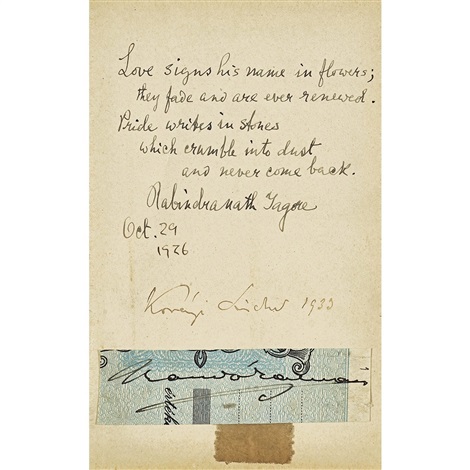 Love signs his name in flowers;
they fade and are ever renewed.
Pride writes in stones
which crumble into dust
and never come back.
Rabindranath Tagore
Oct. 29
1926
1933
értéke